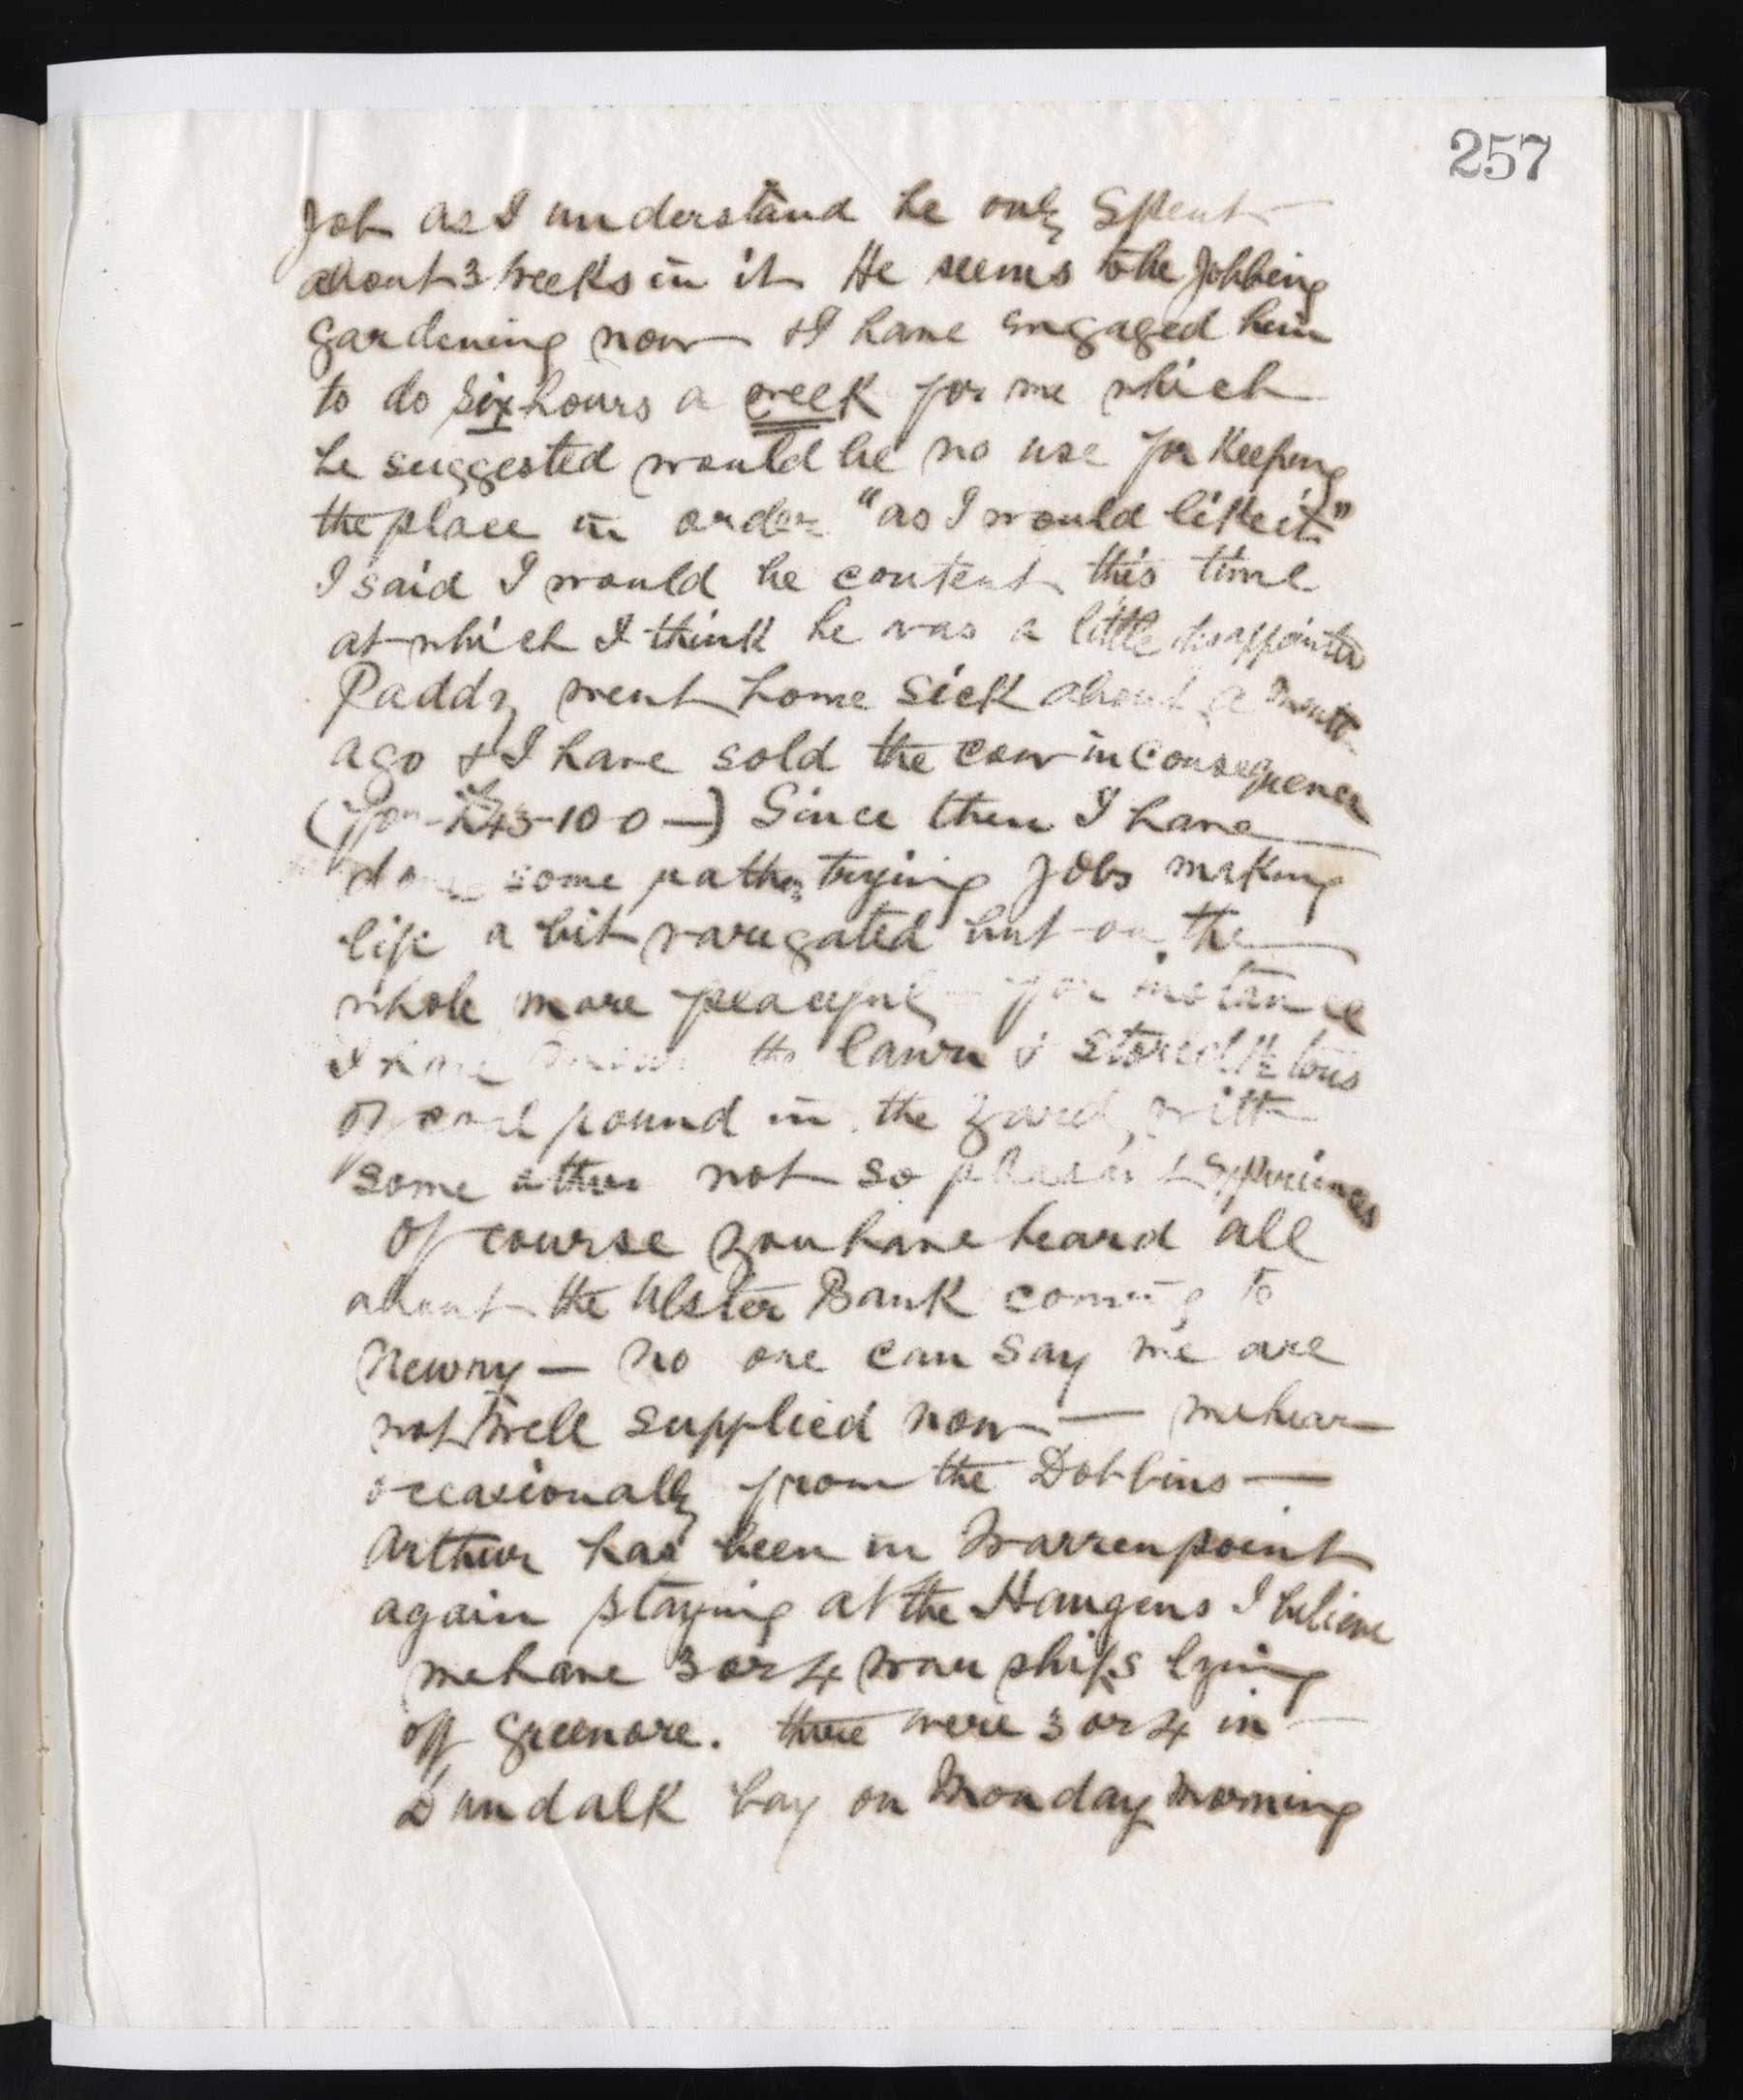 257
Job as I understand he only spent
about 3 weeks in it He seems to be Jobbing
gardening now & I have engaged him
to do six hours a week for me which
he suggested would be no use for keeping
the place in order "as I would like it"
I said I would be content this time
at which I think he was a little disappointed
Paddy went home sick about a month
ago & I have sold the cow in consequence
(for £43-10-0 —) Since then I have
done some rather trying Jobs making
life a bit varigated but on the
whole more peaceful – for instance
I have mown the lawn & stored 1½ tons
of coal found in the yard, with
some other not so pleasant experiences
Of course you have heard all
about the Ulster Bank coming to
Newry — no one can say we are
not well supplied now — we hear
occasionally from the Dobbins —
Arthur has been in Warrenpoint
again staying at the Haugens I believe
we have 3 or 4 war ships lying
off Greenore. there were 3 or 4 in
Dundalk bay on Monday morning